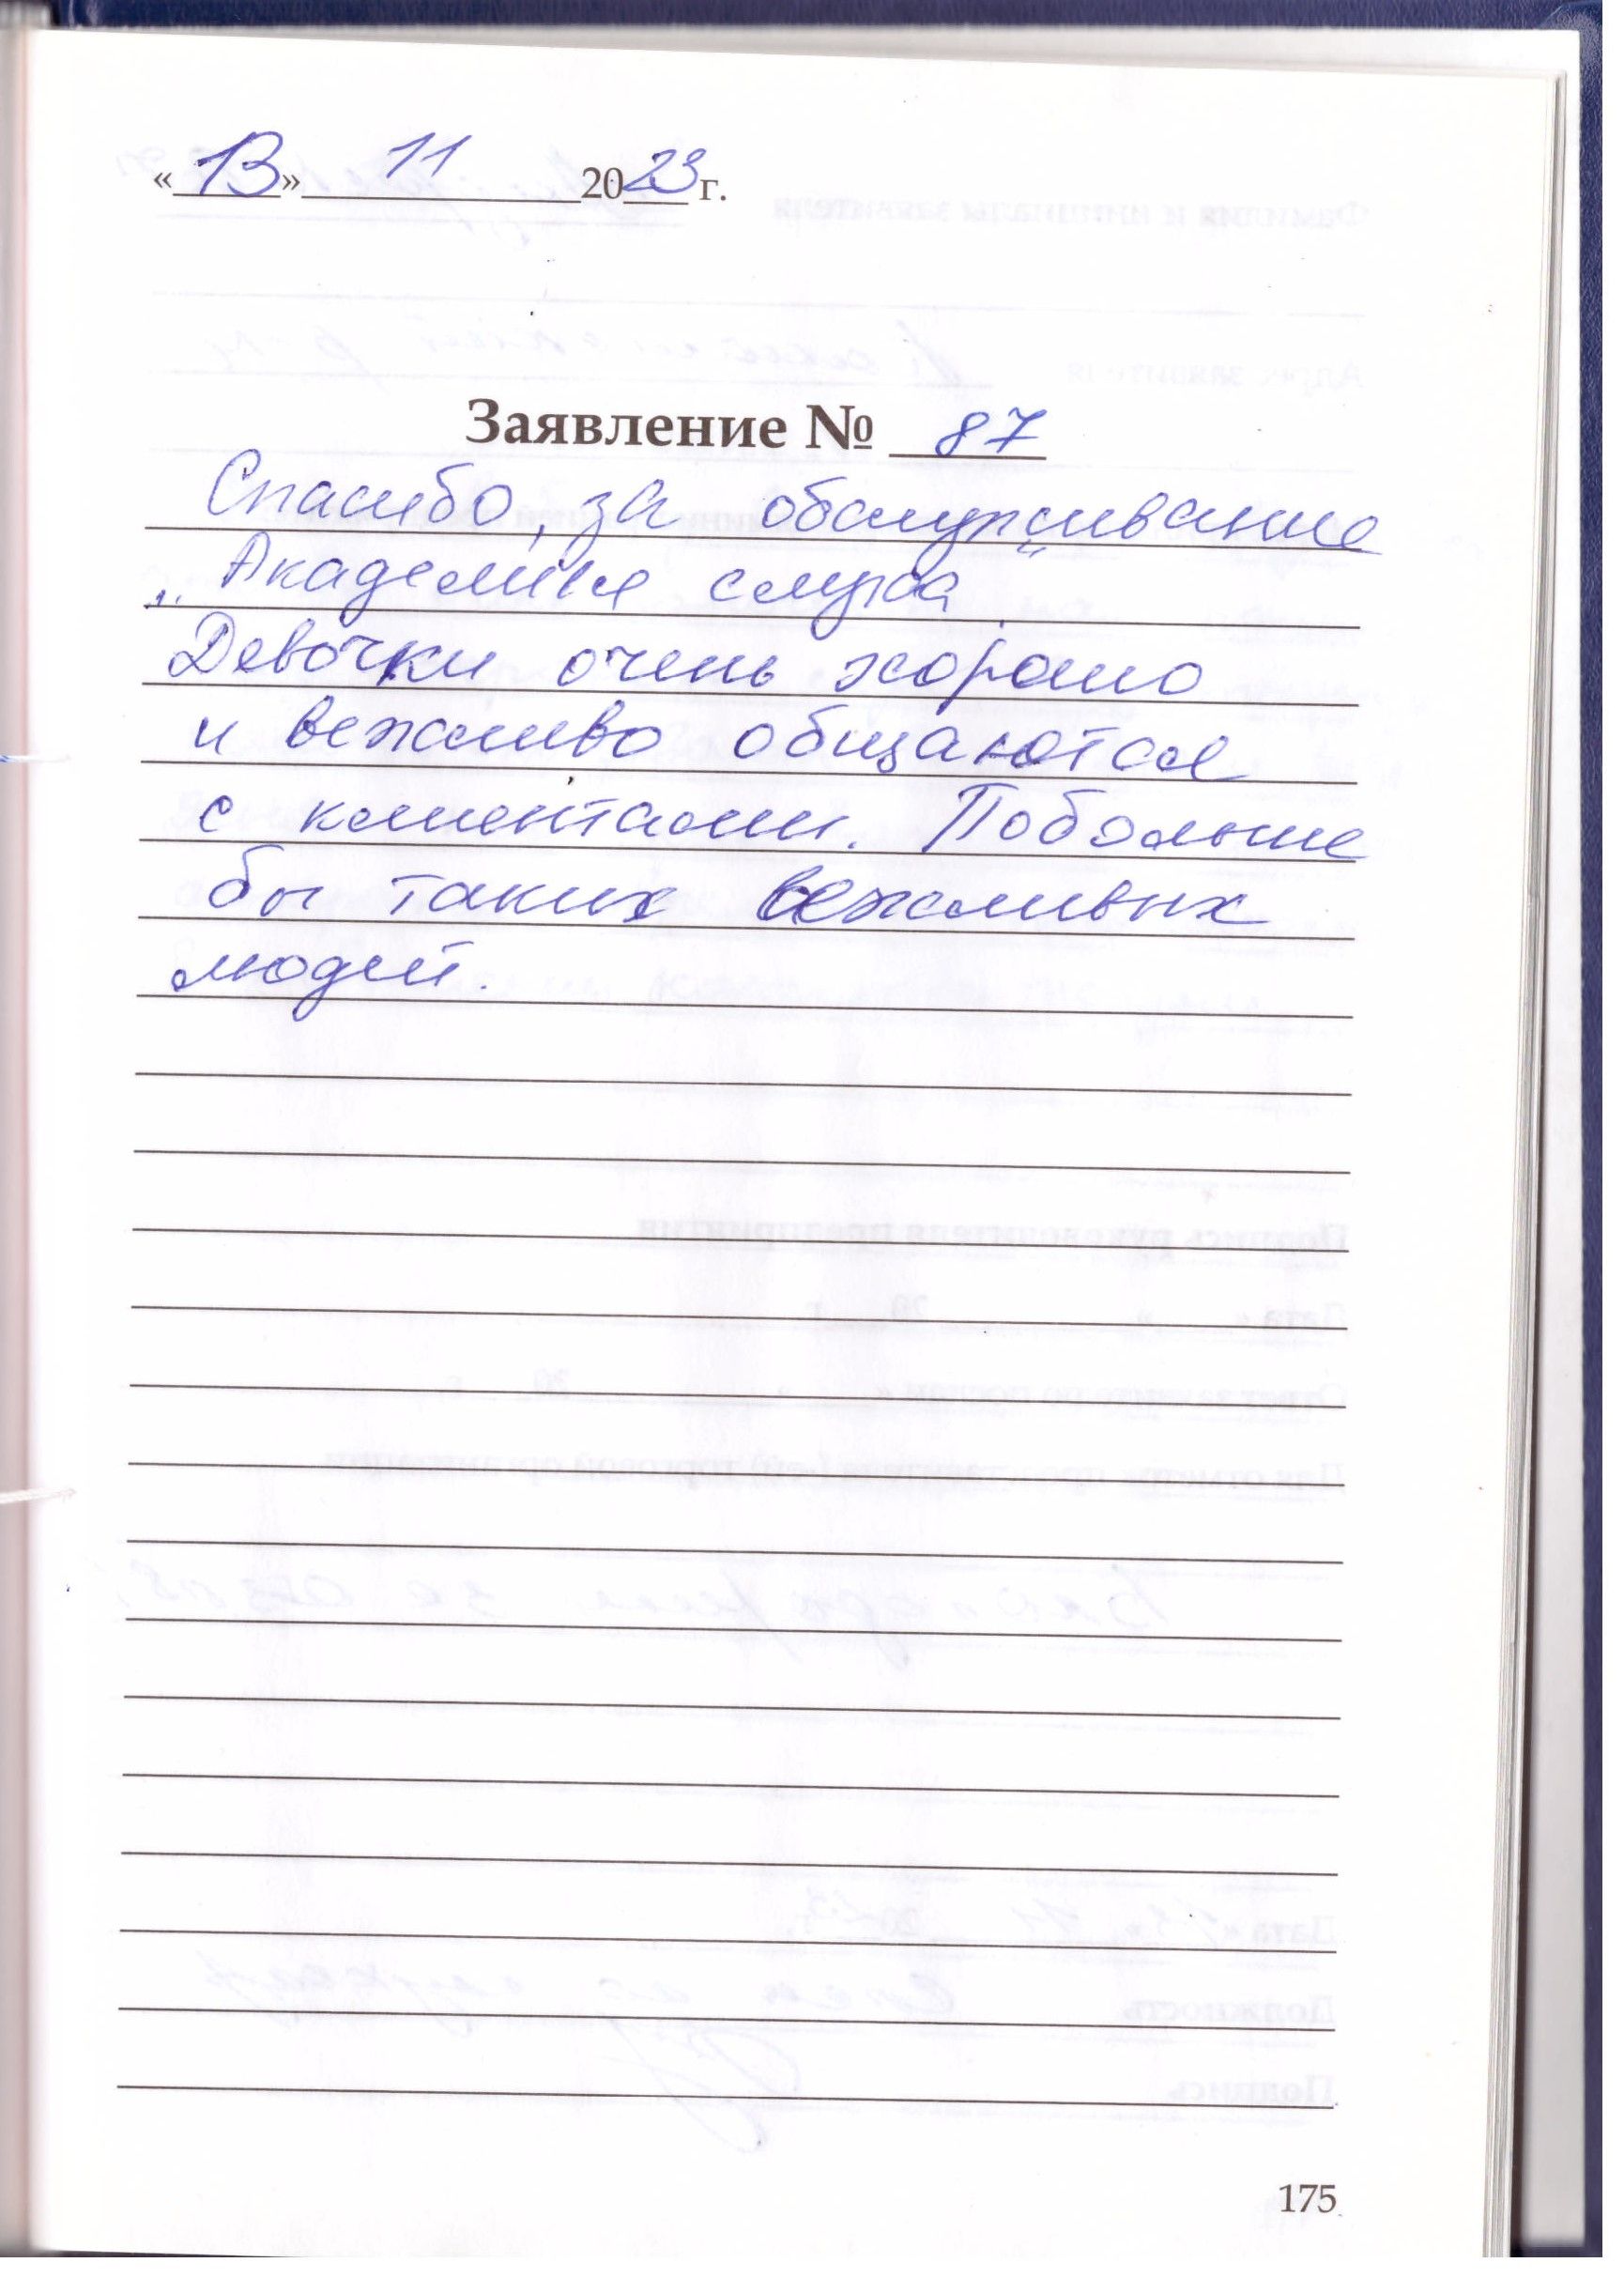 «13» 11 2023 г.
Заявление № 87
Спасибо, за обслуживание
„Академия слуха"
Девочки очень хорошо
и вежливо общаются
с клиентами. Побольше
бы таких вежливых
людей.
175